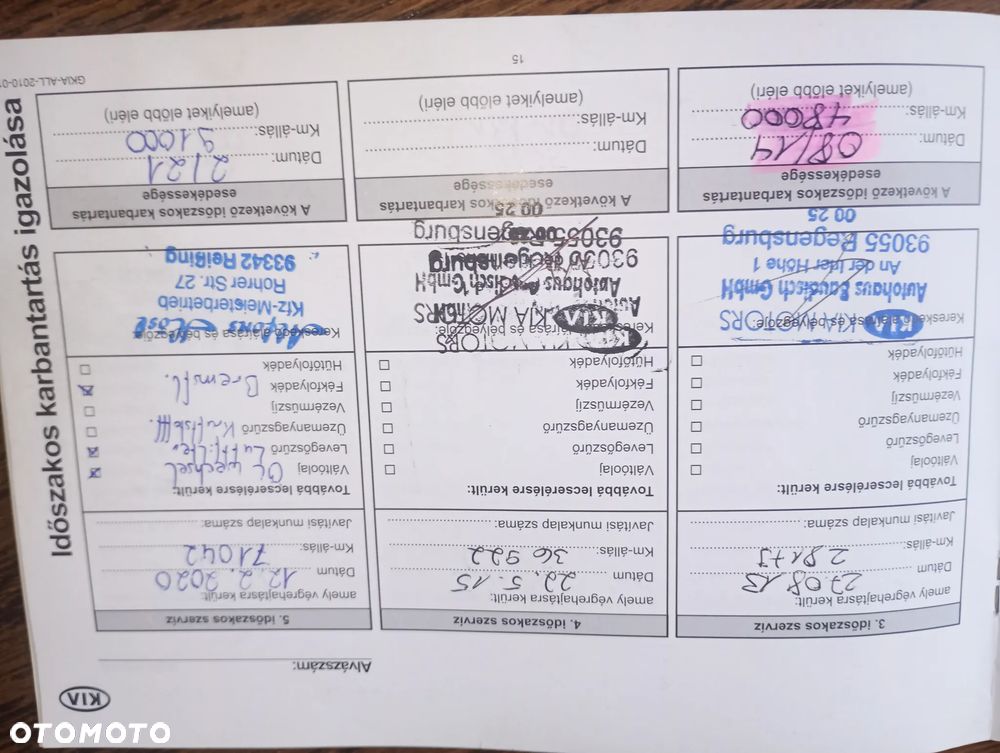 KIA
Alvázszám:
Időszakos karbantartás igazolása
3. időszakos szerviz
amely végrehajtásra került:
Dátum 27.08 13
Km-állás:
Javítási munkalap száma:
Továbbá lecserélésre került:
Váltóolaj
Levegőszűrő
Üzemanyagszűrő
Vezérműszíj
Fékfolyadék
Hűtőfolyadék
KIA MOTORS
Autohaus Baudisch GmbH
An der Höhe 1
93055 Regensburg
00 25
A következő időszakos karbantartás
esedékessége
Dátum: 08/14
Km-állás: 48000
(amelyiket előbb eléri)
4. időszakos szerviz
amely végrehajtásra került:
Dátum 22. 5. 15
Km-állás: 36 922
Javítási munkalap száma:
Továbbá lecserélésre került:
Váltóolaj
Levegőszűrő
Üzemanyagszűrő
Vezérműszíj
Fékfolyadék
Hűtőfolyadék
KIA MOTORS
KIA MOTORS
Autohaus Baudisch GmbH
93055 Regensburg
00 25
A következő időszakos karbantartás
esedékessége
Dátum:
Km-állás:
(amelyiket előbb eléri)
5. időszakos szerviz
amely végrehajtásra került:
Dátum 12. 2. 2020
Km-állás: 71042
Javítási munkalap száma:
Továbbá lecserélésre került:
Váltóolaj Ölwechsel
Levegőszűrő Luftfilter
Üzemanyagszűrő Kraftstoff.
Vezérműszíj
Fékfolyadék Bremsfl.
Hűtőfolyadék
Kfz-Meisterbetrieb
Rohrer Str. 27
93342 Reißing
A következő időszakos karbantartás
esedékessége
Dátum: 2/21
Km-állás: 91000
(amelyiket előbb eléri)
15
GKIA-ALL-2010-01
OTOMOTO